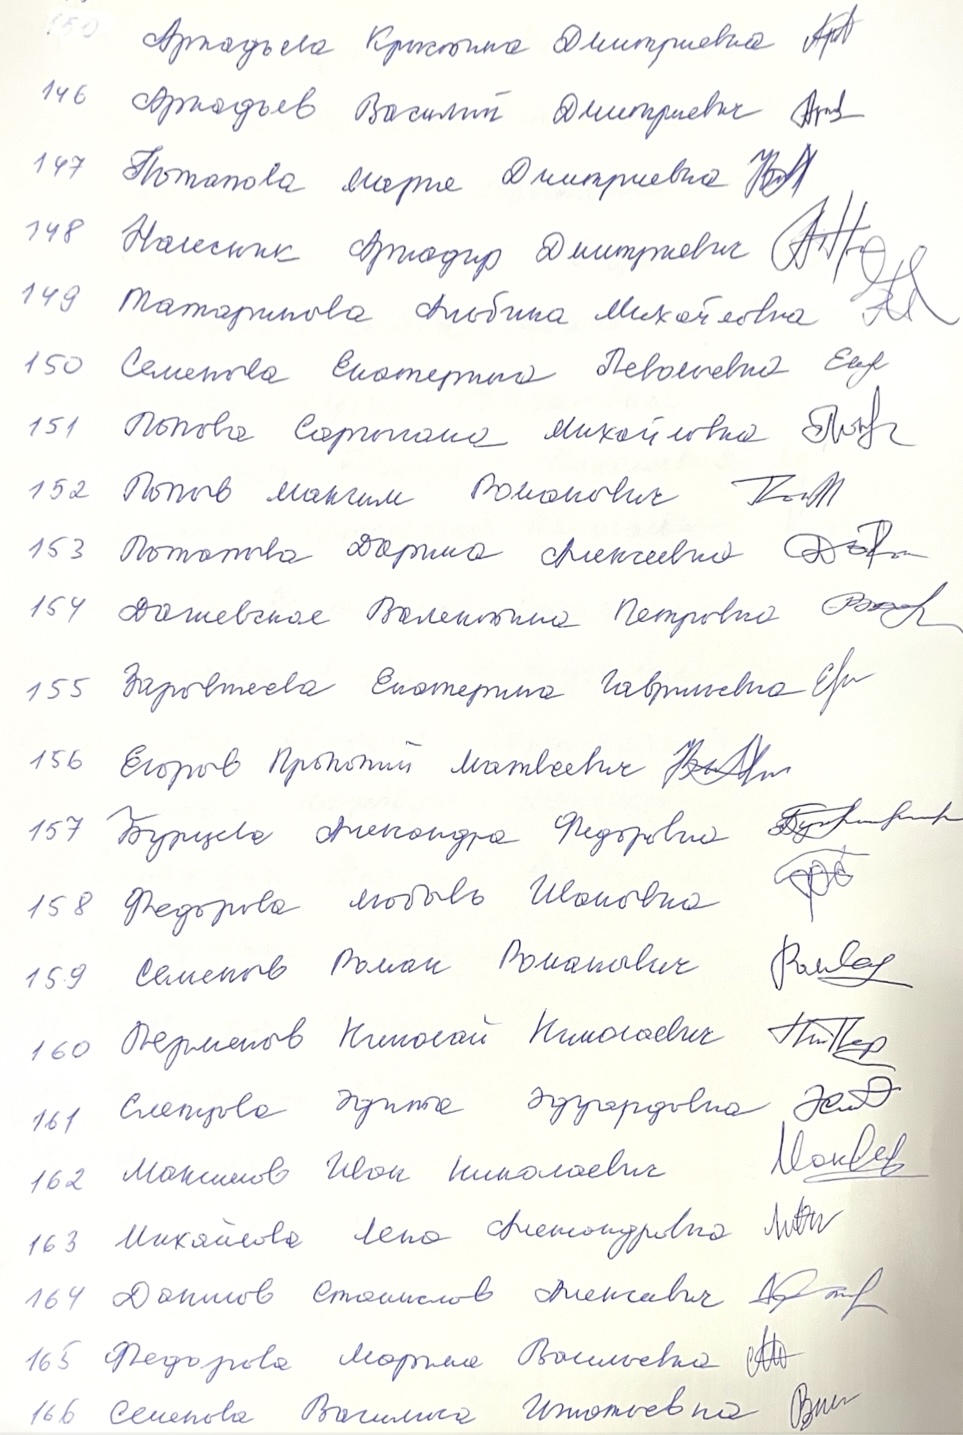 150 Аркадьева Кристина Дмитриевна
146 Аркадьев Василий Дмитриевич
147 Потапова Мария Дмитриевна
148 Аркадир Дмитриевич
149 Татаринова Альбина Михайловна
150 Семенова Екатерина
151 Попова Саргылана Михайловна
152 Попов Максим Романович
153 Потапова Дарина Алексеевна
154 Дашевская Валентина Петровна
155 Екатерина Гаврильевна
156 Егоров Прокопий Матвеевич
157 Бурцева Александра Федоровна
158 Федорова Любовь Ивановна
159 Семенов Роман Романович
160 Николай Николаевич
161 Слепцова Эдита Эдуардовна
162 Максимов Иван Николаевич
163 Михайлова Лена Александровна
164 Данилов Станислов Алексеевич
165 Федорова Марина Васильевна
166 Семенова Василиса Игнатьевна